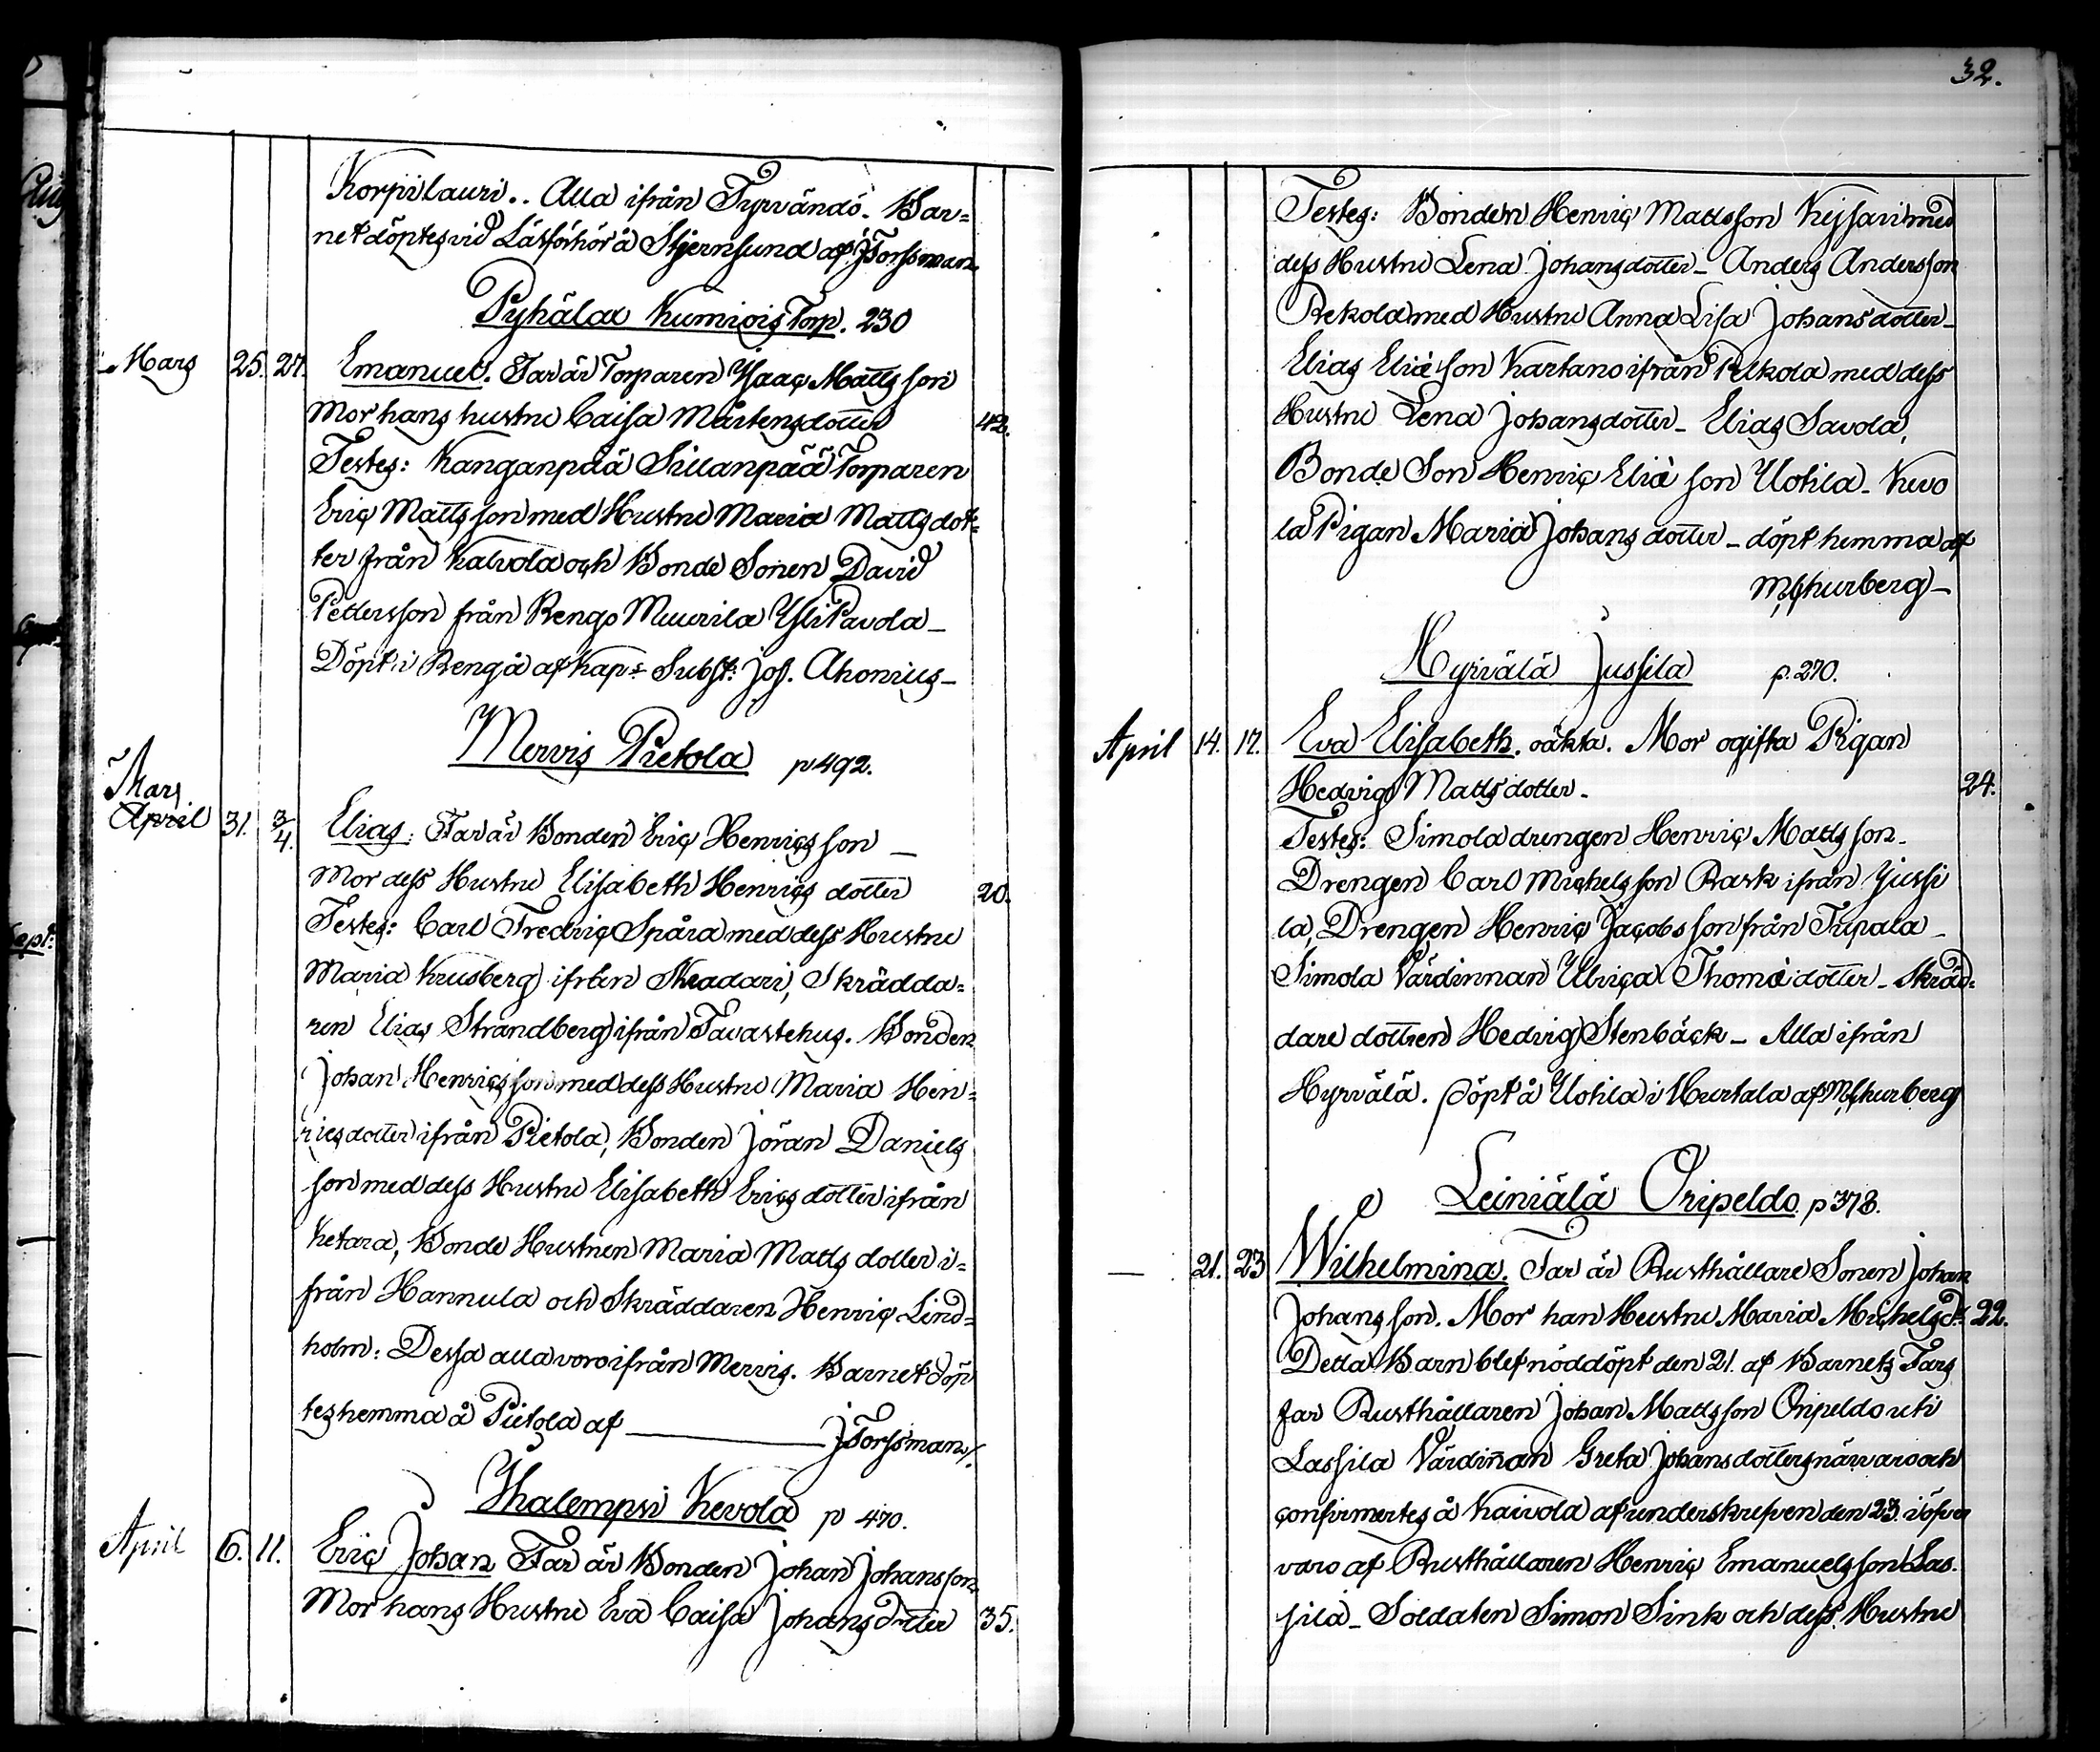 Korpilauri.. Alla ifrån Tyrvändö. Bar=
net döptes vid Läsförhör å Stjernsund af J Forssman.
Pyhälax Kumiois Torp. 230
Mars 25. 27. Emanuel. Far är Torparen Ysaac Mattsson
Mor hans hustru Caisa Mårtensdotter 42.
Testes: Kanganpää Sillanpää Torparen
Eric Mattsson med Hustru Maria Mattsdot=
ter från Kalvola och Bonde Sonen David
Pettersson från Rengo Muurila YliPavola_
Döpt i Rengå af Kap: Subst: Jos. Ahonius_
Mervis Pietola p 492.
Mars
April 31. 3/4. Elias. Far är Bonden Eric Henricsson _
Mor dess Hustru Elisabeth Henrics dotter 20.
Testes: Carl Fredric Spåra med dess Hustru
Maria Krusberg ifrån Skadari, Skrädda=
ren Elias Strandberg ifrån Tavastehus. Bonden
Johan Henricsson med dess Hustru Maria Hen=
ricsdotter ifrån Pietola, Bonden Jöran Daniels
son med dess Hustru Elisabeth Erics dotter ifrån
Ketara, Bonde Hustrun Maria Matts dotter i=
från Hannula och Skräddaren Henric Lind=
holm: Dessa alla voro ifrån Mervis. Barnet döp
tes hemma å Pietola af J Forssman/.
Ihalempsi Kevola p 470.
April 6. 11. Eric Johan Far är Bonden Johan Johansson
Mor hans Hustru Eva Caisa Johansdotter 35.
32.
Testes: Bonden Henric Mattsson Kejsari med
dess Hustru Lena Johansdotter_ Anders Andersson
Rekola med Hustru Anna Lisa Johansdotter_
Elias Eliæson Kartano ifrån Rekola med dess
Hustru Lena Johansdotter_ Elias Savola,
Bonde Son Henric Eliæ son Uotila_ Kevo
la Pigan Maria Johans dotter_ döpt hemma af
M Churberg_
Hyrvälä Jussila p. 270.
April 14. 17. Eva Elisabeth. oäkta. Mor ogifta Pigan
Hedvig Matts dotter_ 24.
Testes: Simola drengen Henric Matts son_
Drengen Carl Michelsson Rask ifrån Jussi
la, Drengen Henric Jacobs son från Tupala_
Simola Värdinnan Ulrica Thomæ dotter_ Skräd=
dare dottren Hedvig Stenbäck_ Alla ifrån
Hyrvälä. Döpt å Uotila i Hurtala af M Churberg
Leiniälä Oripeldo p 378.
— 21. 23 Wilhelmina. Far är Rusthållare Sonen Johan
Johans son. Mor han Hustru Maria Michelsd: 22.
Detta Barn blef nöddöpt den 21. af Barnets Fars
far Rusthållaren Johan Mattsson Oripeldo uti
Lassila Värdinnan Greta Johansdotters närvaro och
confirmertes å Kaivola af underskrefven den 23 i öfver
varo af Rusthållaren Henric Emanuelsson Las.
sila_ Soldaten Simon Sink och dess Hustru